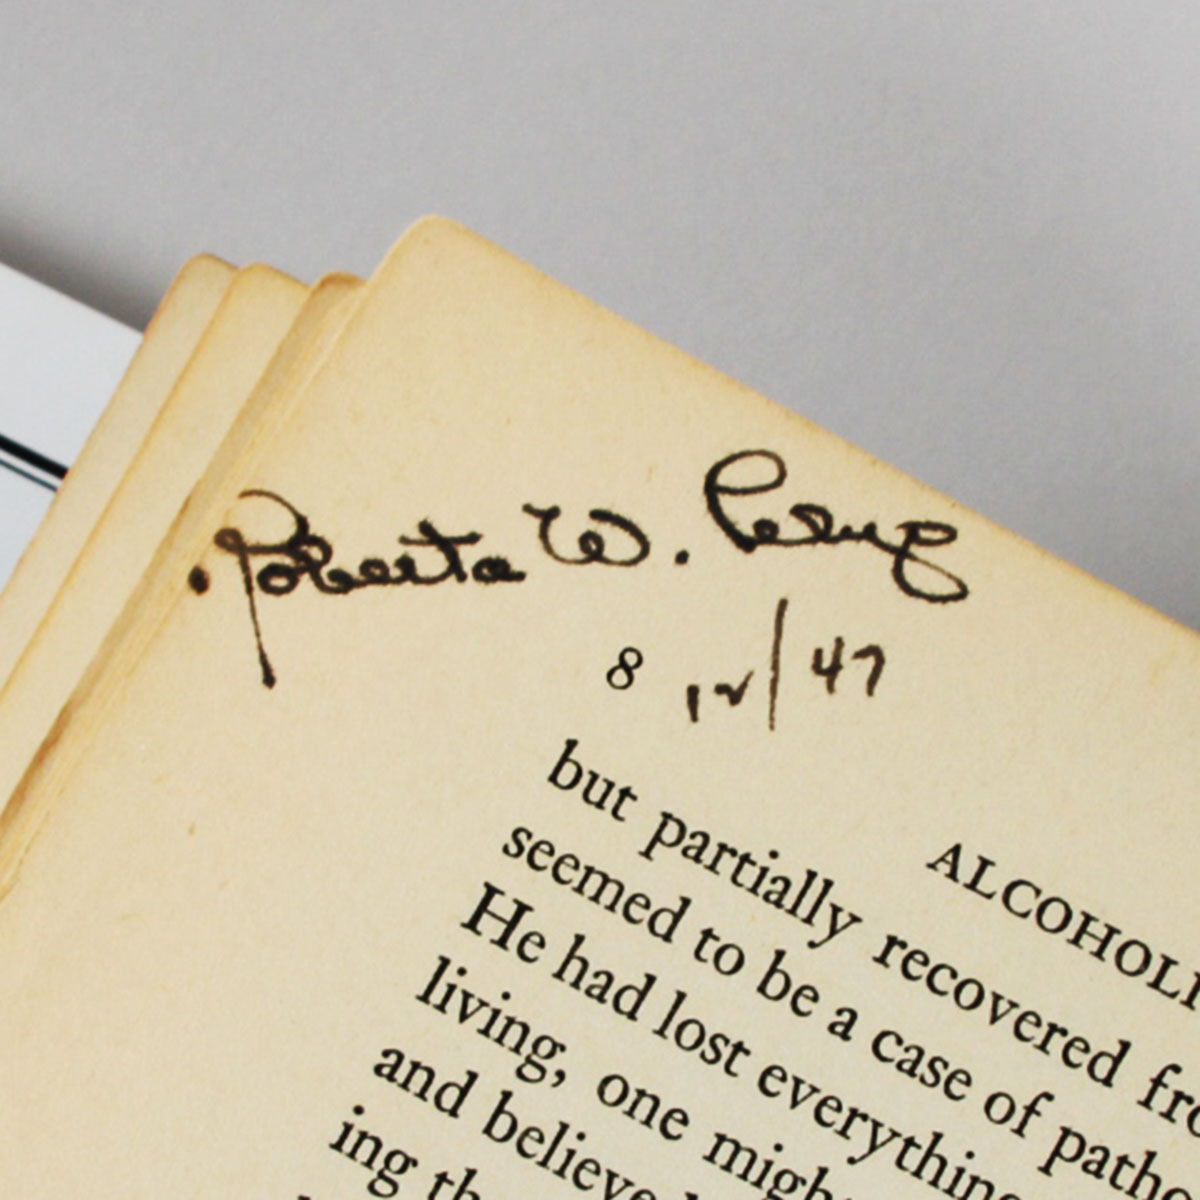 Roberta W.
8 12/47
ALCOHOLI
but partially recovered fro
seemed to be a case of patho
He had lost everything
living, one might
and believe
ing th